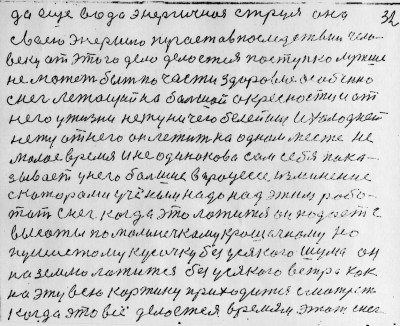 да еще вода энергичная струя она 32
свою энергию пускает а впоследствии чело-
веку от этого дело делается поступком лучше
не может быть по части здоровье особенно
снег летающий на большой окресности и от
него у жизни нету ничего белейши и холодней
нету от него он летит на одном месте не
малое время и не одинокова сам себя пока-
зывает у него больше в процессе изменение
с которами учёным надо над этим рабо-
тат снег когда это ложится он подает с
высоты по малинечкаму крошачкаму но
пушистому кусочку без усякого шума он
на землю ложится без усякого ветра как
на эту всю картину приходится сматреть
когда это всё делается время и этат снег